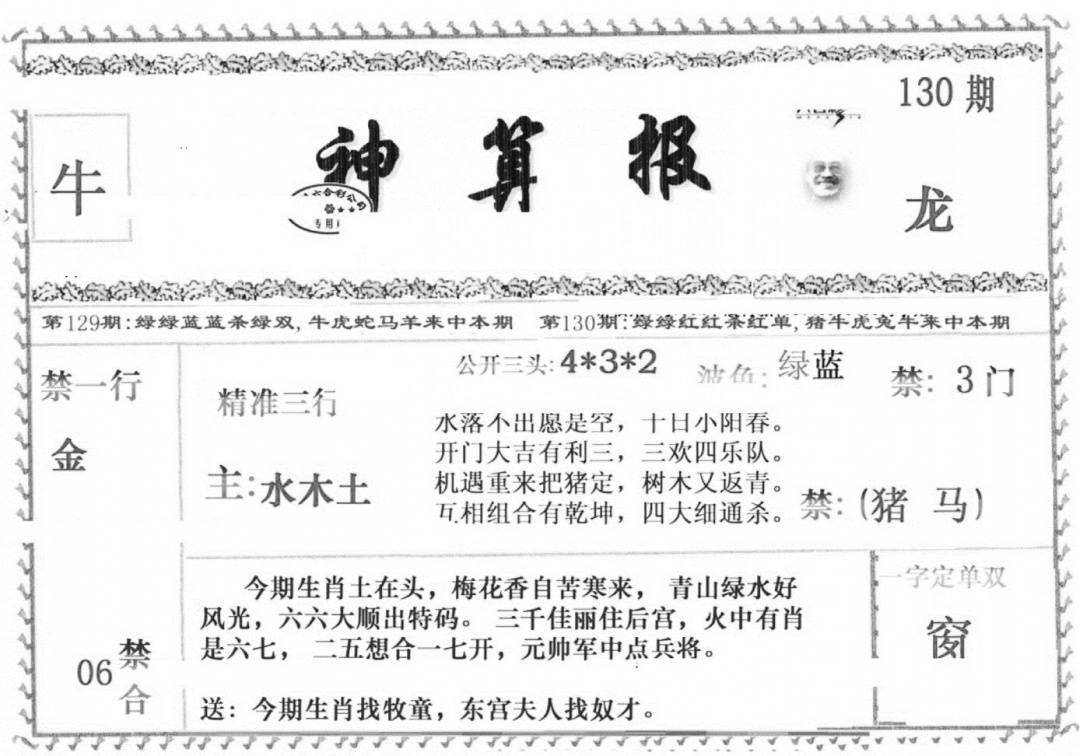 130 期
牛
神算报
六合彩公司
专用
龙
第129期:绿绿蓝蓝杀绿双,牛虎蛇马羊来中本期 第130期:绿绿红红杀红单,猪牛虎兔牛来中本期
禁一行
金
精准三行
主:水木土
公开三头:4*3*2
波色:绿蓝
禁: 3门
水落不出愿是空，十日小阳春。
开门大吉有利三，三欢四乐队。
机遇重来把猪定，树木又返青。
互相组合有乾坤，四大细通杀。
禁:(猪 马)
06
禁
合
今期生肖土在头，梅花香自苦寒来， 青山绿水好
风光，六六大顺出特码。 三千佳丽住后宫，火中有肖
是六七， 二五想合一七开，元帅军中点兵将。
送：今期生肖找牧童，东宫夫人找奴才。
一字定单双
窗